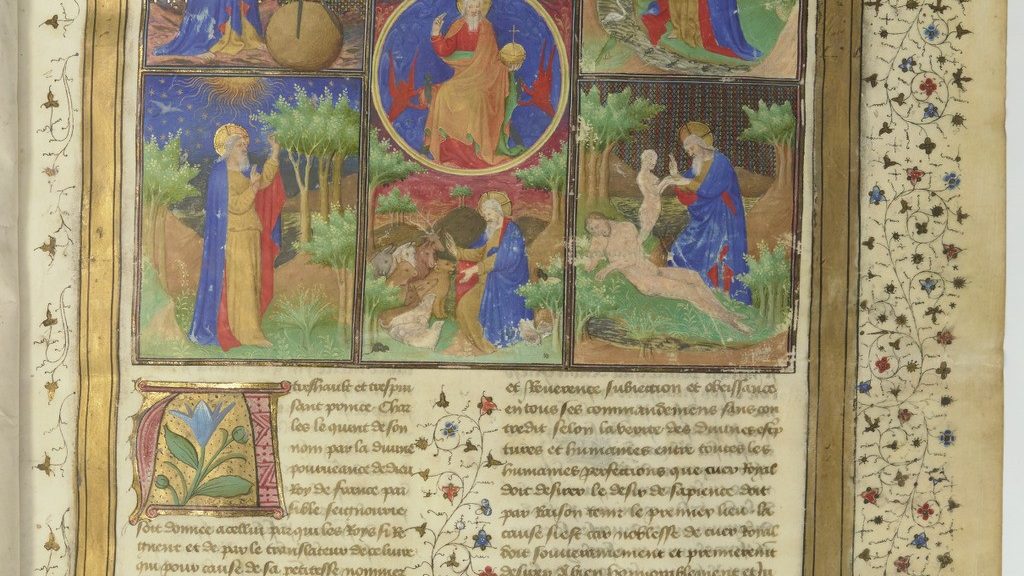 A treshault et trespui
sant prince Char
les le quint de son
nom par la divine
pourveance de dieu
Roy de france pai
sible seignourie
soit donnee a cellui par qui les Roys si Re
gnent et de par le translateur de ce livre
qui pour cause de sa petitesse nommer
et Reverence subiection et obeissance
en tous ses commandemens sans con
tredit selon la verite des divines escrip
tures et humaines entre toutes les
humaines perfections que cuer royal
doit desirer le desir de sapience doit
par raison tenir le premier lieu la
cause si est car noblesse de cuer royal
doit souverainement et premierement
desirer